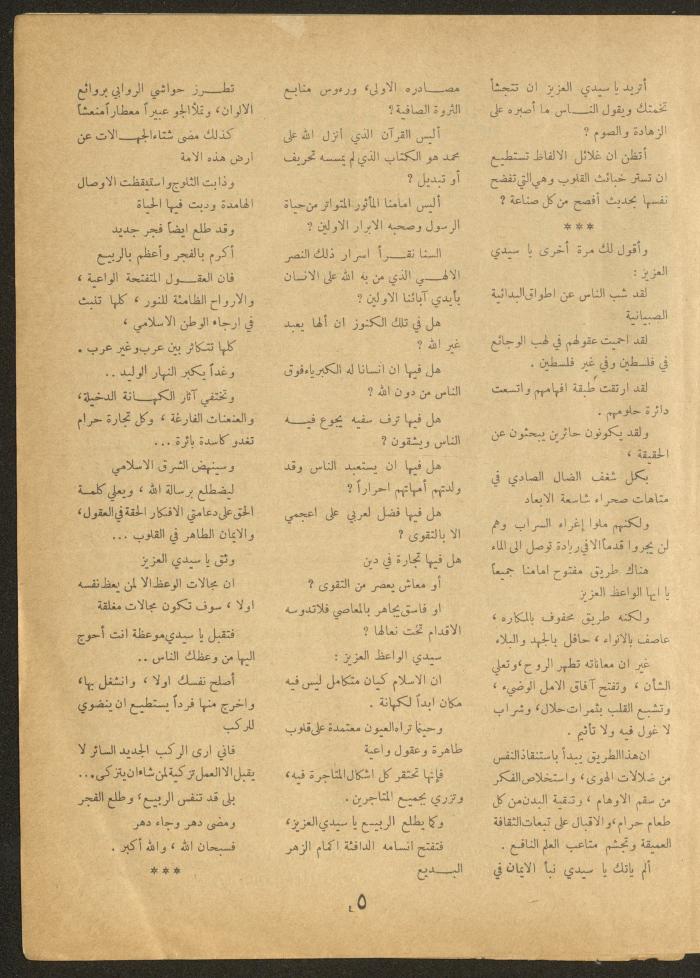 أتريد يا سيدي العزيز ان تتجشأ
تخمتك ويقول النـاس ما أصبره على
الزهادة والصوم ؟
أتظن ان غلائل الالفاظ تستطيع
ان تستر خبائث القلوب وهي التي تفضح
نفسها بحديث أفصح من كل صناعة ؟
***
وأقول لك مرة أخرى يا سيدي
العزيز :
لقد شب الناس عن اطواق البدائية
الصبيانية
لقد احميت عقولهم في لهب الوجائع
في فلسطين وفي غير فلسطين .
لقد ارتقت طبقة افهامهم واتسعت
دائرة حلومهم .
ولقد يكونون حائرين يبحثون عن
الحقيقة ،
بكل شغف الضال الصادي في
متاهات صحراء شاسعة الابعاد
ولكنهم ملوا إغراء السراب وهم
لن يجروا قدماً الا في ريادة توصل الى الماء
هناك طريق مفتوح امامنا جميعاً
يا ايها الواعظ العزيز
ولكنه طريق محفوف بالمكاره ،
عاصف بالانواء ، حافل بالجهد والبلاء
غير ان معاناته تطهر الروح ، وتعلي
الشأن ، وتفتح آفاق الامل الوضيء ،
وتشبع القلب بثمرات حلال ، وشراب
لا غول فيه ولا تأثيم .
ان هذا الطريق يبدأ باستنقاذ النفس
من ضلالات الهوى ، واستخلاص الفكر
من سقم الاوهام ، وتنقية البدن من كل
طعام حرام ، والاقبال على تبعات الثقافة
العميقة وتجشم متاعب العلم النافع .
ألم يأتك يا سيدي نبأ الايمان في
مصـادره الاولى ، ورءوس منابع
الثروة الصافية ؟
أليس القرآن الذي أنزل الله على
محمد هو الكتاب الذي لم يمسسه تحريف
أو تبديل ؟
أليس امامنا المأثور المتواتر من حياة
الرسول وصحبه الابرار الاولين ؟
السنا نقـرأ اسرار ذلك النصر
الالهـي الذي من به الله على الانسان
بأيدي آبائنا الاولين ؟
هل في تلك الكنوز ان ألهاً يعبد
غير الله ؟
هل فيها ان انسانا له الكبرياء فوق
الناس من دون الله ؟
هل فيها ترف سفيه يجوع فيـه
الناس ويشقون ؟
هل فيها ان يستعبد الناس وقد
ولدتهم أمهاتهم احراراً ؟
هل فيها فضل لعربي على اعجمي
الا بالتقوى ؟
هل فيها تجارة في دين
أو معاش يعصر من التقوى ؟
او فاسق يجاهر بالمعاصي فلا تدوسه
الاقدام تحت نعالها ؟
سيدي الواعظ العزيز :
ان الاسلام كيان متكامل ليس فيه
مكان ابداً لكهانة .
وحينما تراه العيون معتمدة على قلوب
طاهرة وعقول واعية
فإنها تحتقر كل اشكال المتاجرة فيه ،
وتزري بجميع المتاجرين .
وكما يطلع الربيـع يا سيدي العزيز ،
فتفتح انسامه الدافئة اكمام الزهر
البـديع
تطـرز حواشي الروابي بروائع
الالوان ، وتملأ الجو عبيراً معطاراً منعشاً
كذلك مضى شتاء الجهـالات عن
ارض هذه الامة
وذابت الثلوج واستيقظت الاوصال
الهامدة ودبت فيها الحياة
وقد طلع ايضاً فجر جديد
أكرم بالفجر وأعظم بالربيـع
فان العقـول المتفتحة الواعية ،
والارواح الظامئة للنور ، كلها تنبث
في ارجاء الوطن الاسلامي ،
كلها تتكاثر بين عرب وغير عرب .
وغداً يكبر النهار الوليد ..
وتختفي آثار الكهـانة الدخيلة ،
والعنعنات الفارغة ، وكل تجارة حرام
تغدو كاسدة بائرة ...
وسينهض الشرق الاسلامي
ليضطلع برسالة الله ، ويعلي كلمـة
الحق على دعامتي الافكار الحقة في العقول ،
والايمان الطاهر في القلوب ...
وثق يا سيدي العزيز
ان مجالات الوعظ الا لمن يعظ نفسه
اولا ، سوف تكون مجالات مغلقة
فتقبل يا سيدي موعظة انت أحوج
اليها من وعظك الناس ..
أصلح نفسك اولا ، وانشغل بها ،
واخرج منها فرداً يستطيع ان ينضوي
للركب
فاني ارى الركب الجديد السائر لا
يقبل الا العمل تزكية لمن شاء ان يتزكى ...
بلى قد تنفس الربيع ، وطلع الفجر
ومضى دهر وجاء دهر
فسبحان الله ، والله أكبر .
***
٥